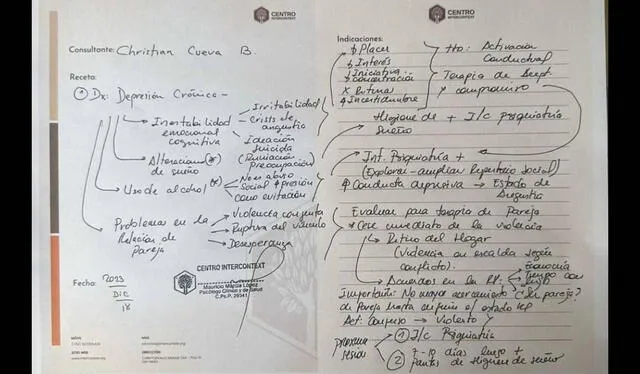 CENTRO
INTERCONTEXT
Consultante: Christian Cueva B.
Receta:
① Dx: Depresión Crónica -
Inestabilidad
emocional
cognitiva
Irritabilidad
Crisis de
angustia
Ideación
suicida
(Rumiación
Preocupación)
Alteraciones
de sueño
Uso de alcohol
No es abuso
Social
como evitación
Problemas en la
Relación de
Pareja
Violencia conjunta
Ruptura del vínculo
Desesperanza
Fecha: 2023
Dic
18
CENTRO INTERCONTEXT
Mauricio Maccia López
Psicólogo Clínico y de Salud
C.Ps.P. 29341
MÓVIL
WEB
SITIO WEB
DIRECCIÓN
CENTRO
INTERCONTEXT
Indicaciones:
Placer
Interés
Iniciativa
Concentración
x Rutina
Incertidumbre
tto: Activación
Conductual
Terapia de Acept.
y compromiso
Higiene de + I/c psiquiatría
sueño
Int. Psiquiatría +
(Explorar - ampliar Repertorio Social)
Conducta depresiva → Estado de
Angustia
Evaluar para terapia de Pareja
* Cese inmediato de la violencia
→ Retiro del Hogar
(Violencia en escalda según
conflicto).
→ Acuerdos en la
Economía
Tiempo con
hijo
Importante: No mayor acercamiento
de Pareja hasta
Act: → Violento
próxima
sesión
① I/c Psiquiatría
② 7-10 días luego +
pautas de Higiene de sueño